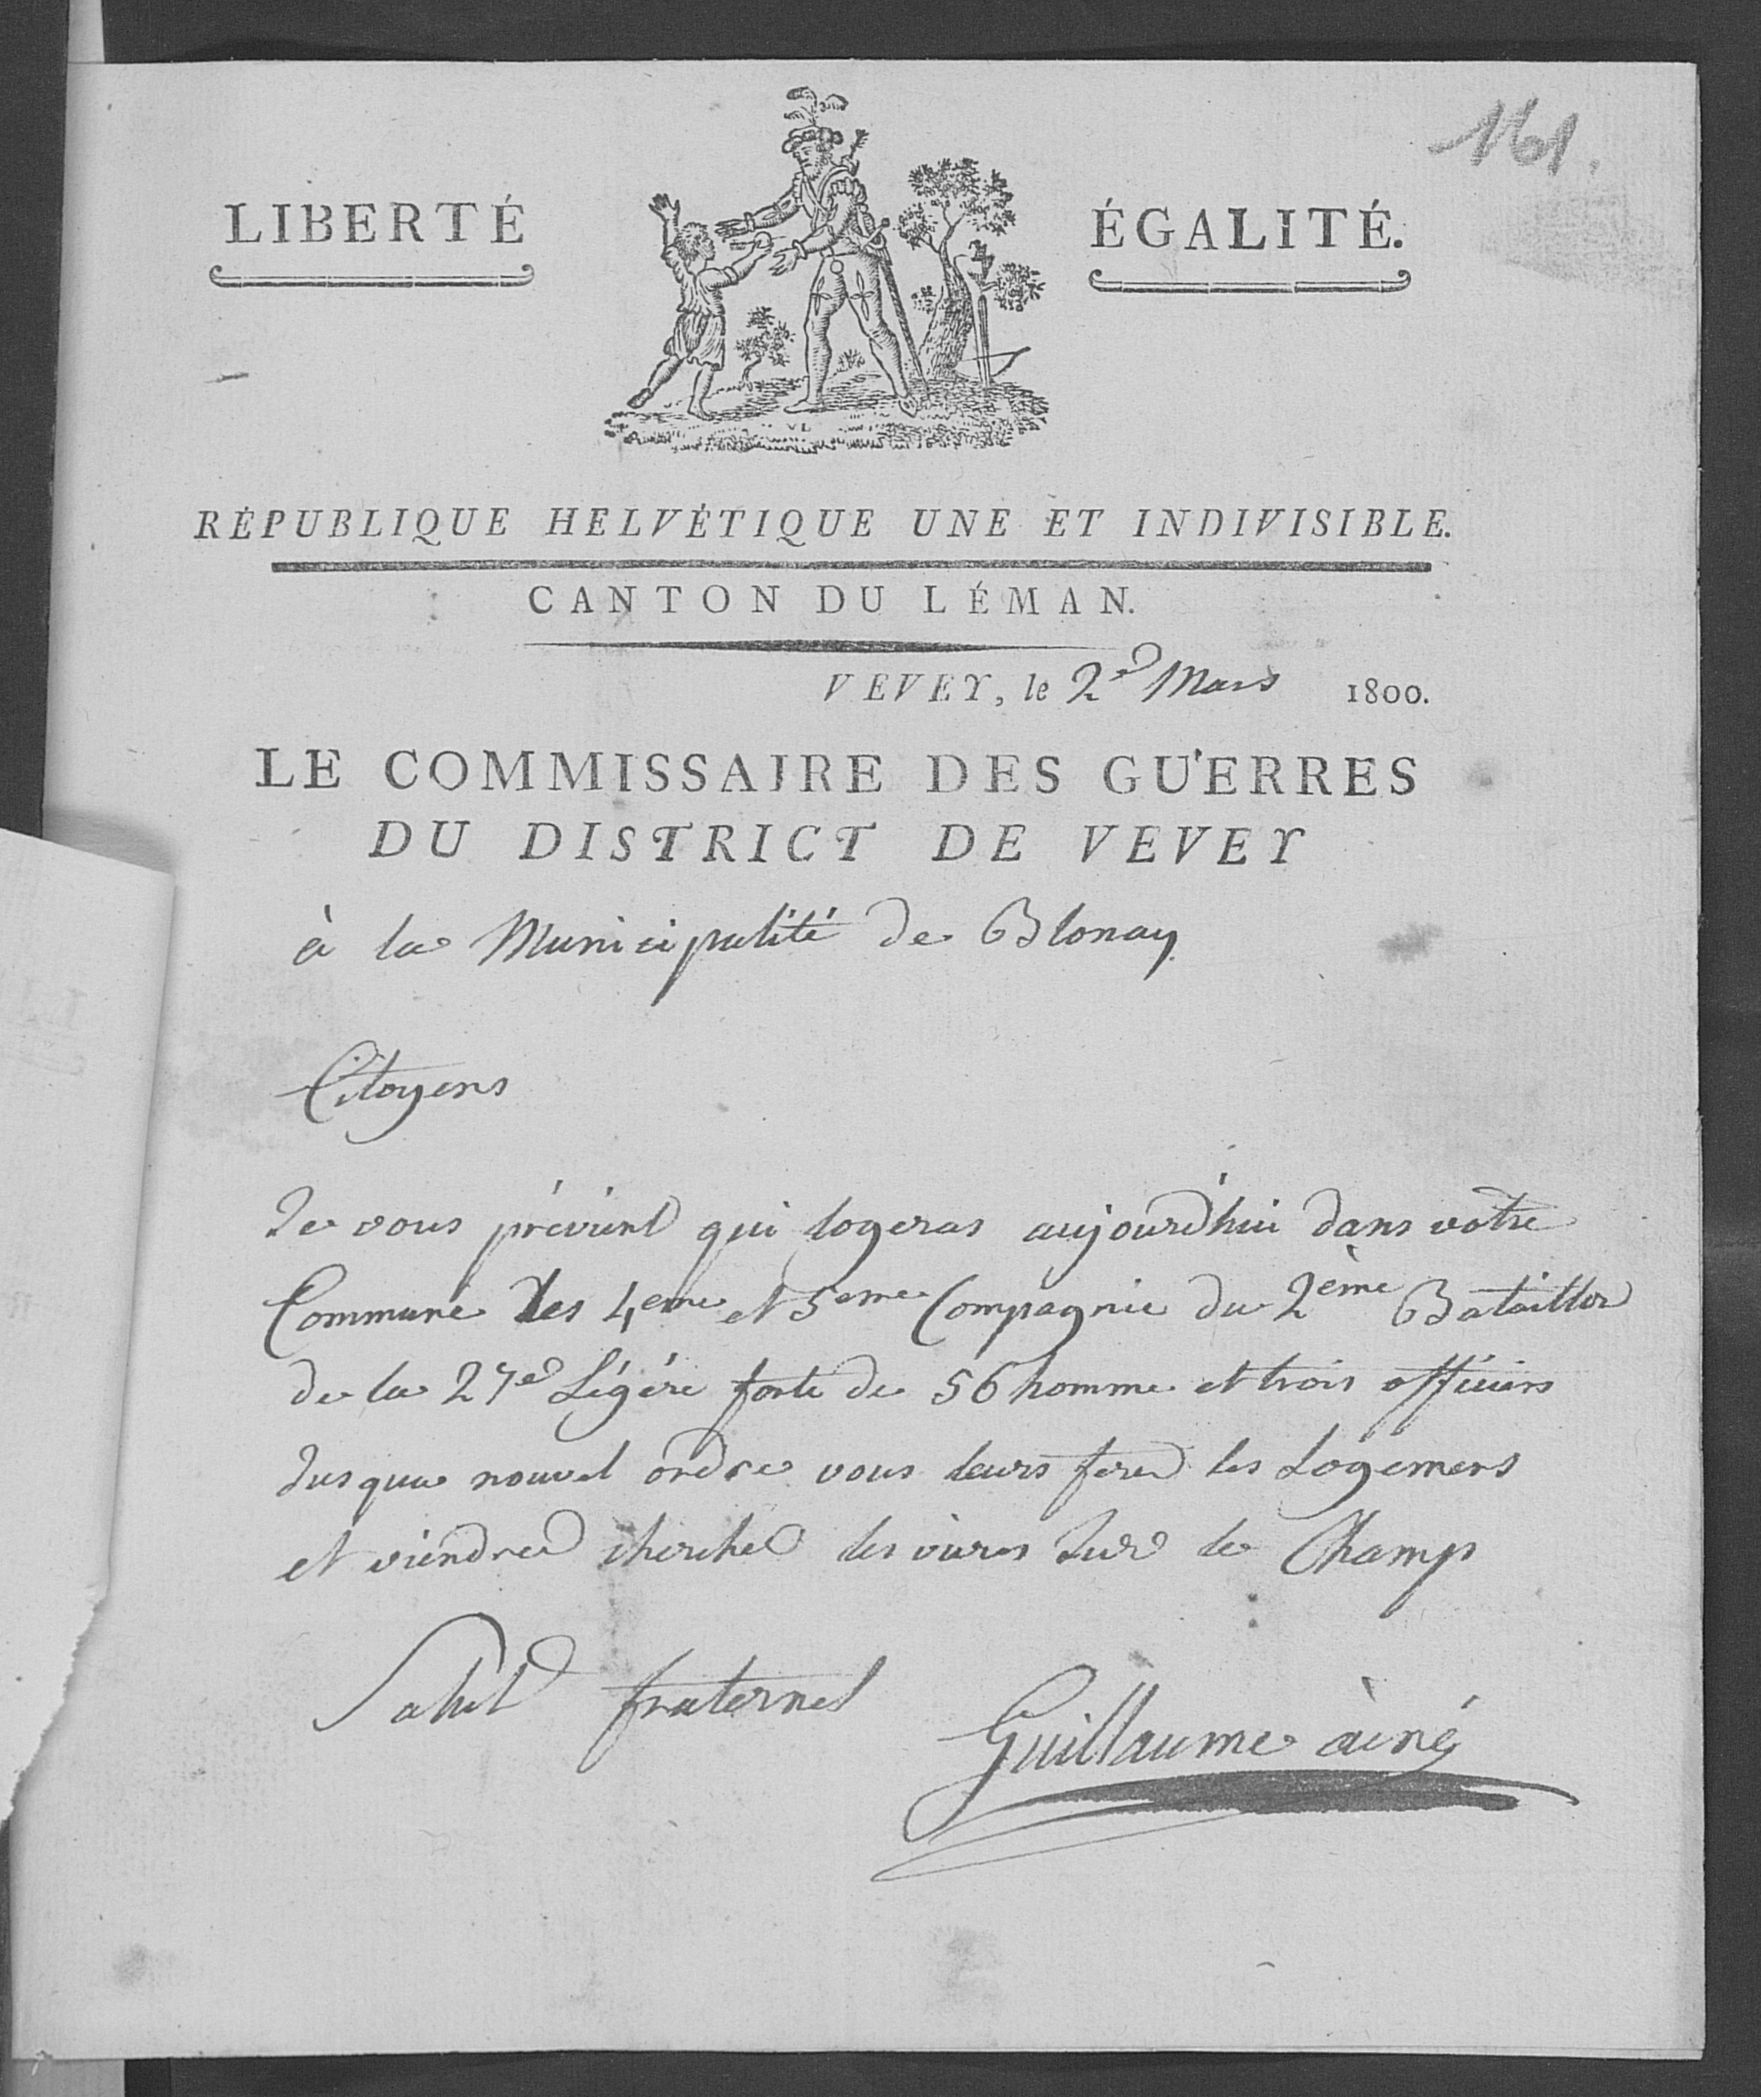 161.
LIBERTÉ
ÉGALITÉ.
RÉPUBLIQUE HELVÉTIQUE UNE ET INDIVISIBLE.
CANTON DU LÉMAN.
VEVEY, le 2e Mars 1800.
LE COMMISSAIRE DES GUERRES
DU DISTRICT DE VEVEY
à la Municipalité de Blonay
Citoyens
Je vous prévient qui logeras aujourd'hui dans votre
Commune les 4eme et 5eme Compagnie du 2ème Bataillon
de la 27e Légére forte de 56 homme et trois officiers
Jusqua nouvel ordre vous leurs feréz les Logemens
et viendrez cherchez les vivres Sur le Champ
Salut fraternel
Guillaume ainé